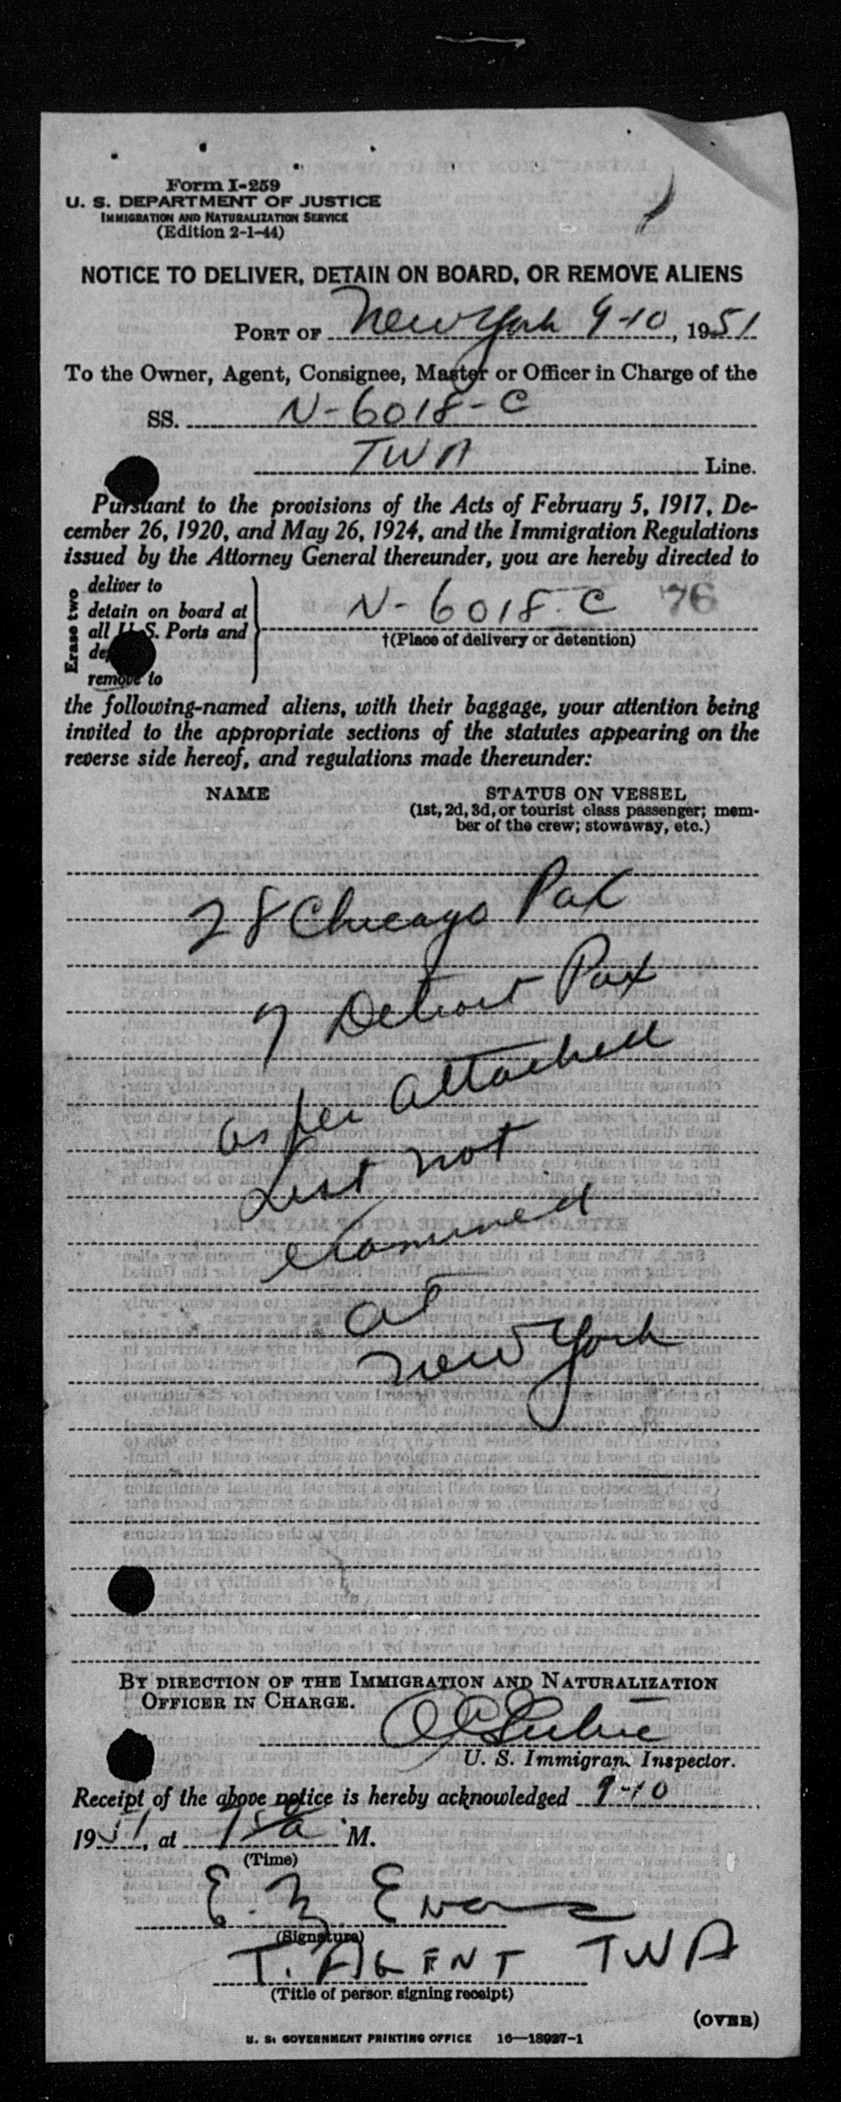 Form I-259
U. S. DEPARTMENT OF JUSTICE
IMMIGRATION AND NATURALIZATION SERVICE
(Edition 2-1-44)
NOTICE TO DELIVER, DETAIN ON BOARD, OR REMOVE ALIENS
PORT OF New York 9-10, 1951
To the Owner, Agent, Consignee, Master or Officer in Charge of the
SS. N-6018-C
TWA Line.
Pursuant to the provisions of the Acts of February 5, 1917, De-
cember 26, 1920, and May 26, 1924, and the Immigration Regulations
issued by the Attorney General thereunder, you are hereby directed to
Erase two
deliver to
detain on board at
all U. S. Ports and
remove to
N-6018-C 76
†(Place of delivery or detention)
the following-named aliens, with their baggage, your attention being
invited to the appropriate sections of the statutes appearing on the
reverse side hereof, and regulations made thereunder:
NAME STATUS ON VESSEL
(1st, 2d, 3d, or tourist class passenger; mem-
ber of the crew; stowaway, etc.)
28 Chicago Pax
7 Detroit Pax
as per attached
List not
examined
at
New York
BY DIRECTION OF THE IMMIGRATION AND NATURALIZATION
OFFICER IN CHARGE.
U. S. Immigrant Inspector.
Receipt of the above notice is hereby acknowledged 9-10
1951, at M.
(Time)
E. Evans
(Signature)
T. AGENT TWA
(Title of person signing receipt)
(OVER)
U. S. GOVERNMENT PRINTING OFFICE 16—18927-1